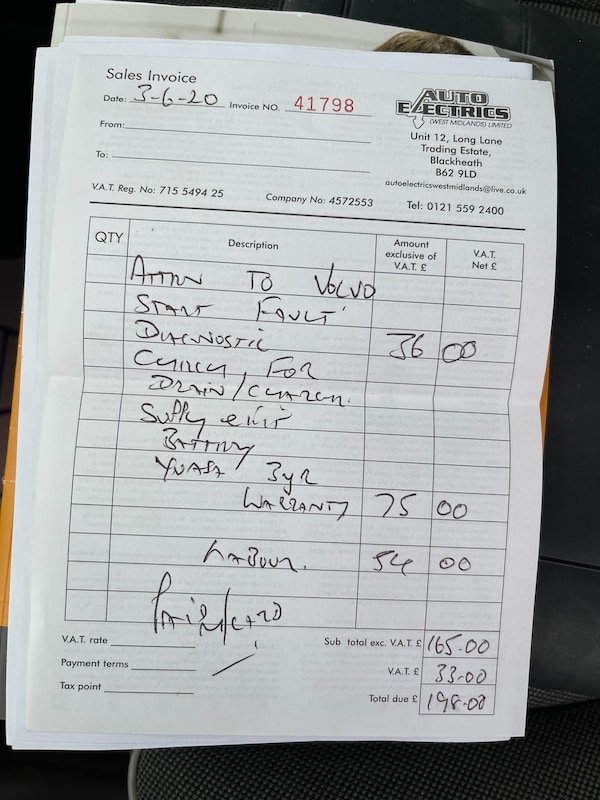 Sales Invoice
Date: 3-6-20 Invoice NO. 41798
AUTO
ELECTRICS
(WEST MIDLANDS) LIMITED
Unit 12, Long Lane
Trading Estate,
Blackheath
B62 9LD
autoelectricswestmidlands@live.co.uk
Tel: 0121 559 2400
From:
To:
V.A.T. Reg. No: 715 5494 25 Company No: 4572553
QTY Description Amount exclusive of V.A.T. £ V.A.T. Net £
ATTEN TO VOLVO
START FAULT
DIAGNOSTIC 36 00
CHECK FOR
DRAIN/CHARGE.
SUPPLY & FIT
BATTERY
YUASA 3yR
WARRANTY 75 00
LABOUR. 54 00
PAID/CARD
V.A.T. rate Sub total exc. V.A.T. £ 165.00
Payment terms V.A.T. £ 33.00
Tax point Total due £ 198.00